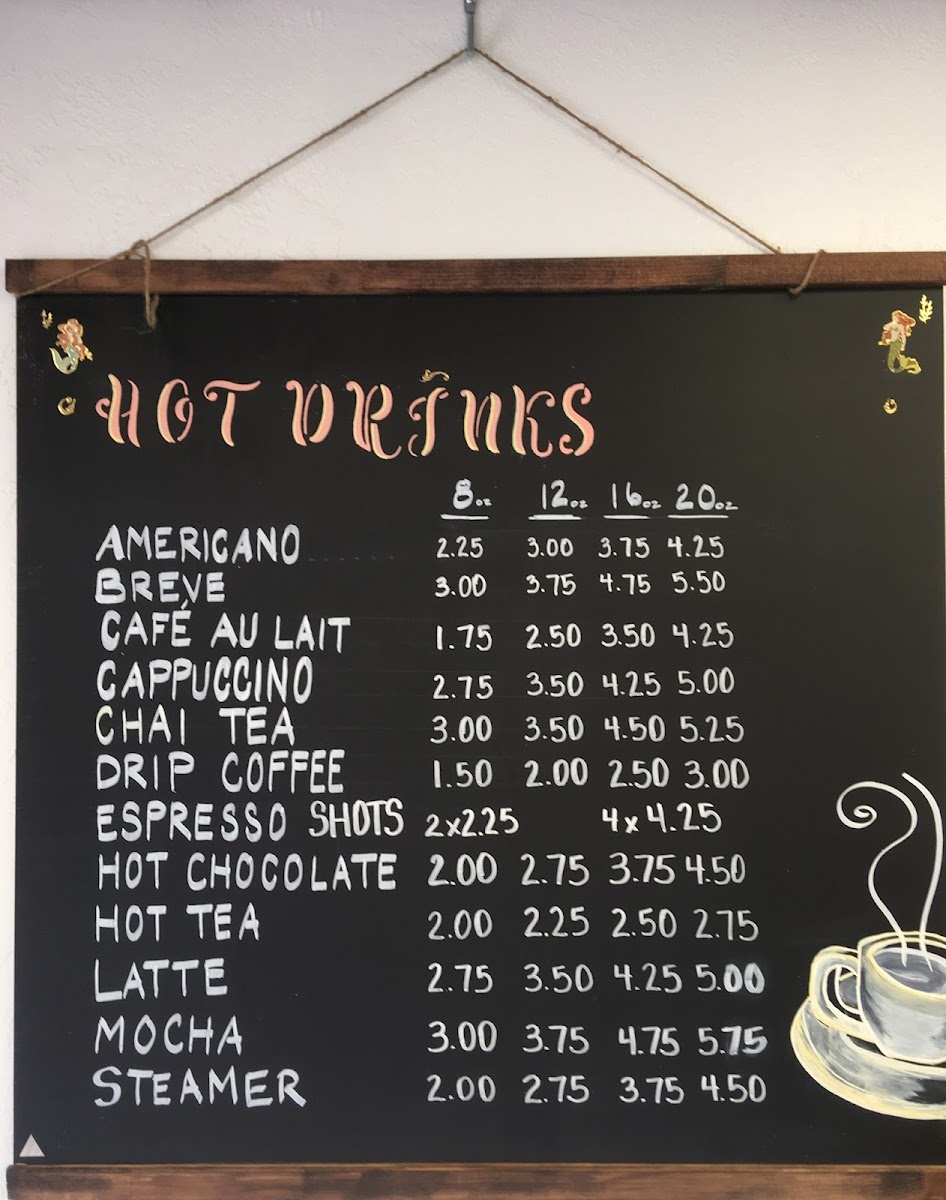 HOT DRINKS
8oz 12oz 16oz 20oz
AMERICANO 2.25 3.00 3.75 4.25
BREVE 3.00 3.75 4.75 5.50
CAFÉ AU LAIT 1.75 2.50 3.50 4.25
CAPPUCCINO 2.75 3.50 4.25 5.00
CHAI TEA 3.00 3.50 4.50 5.25
DRIP COFFEE 1.50 2.00 2.50 3.00
ESPRESSO SHOTS 2x2.25 4x4.25
HOT CHOCOLATE 2.00 2.75 3.75 4.50
HOT TEA 2.00 2.25 2.50 2.75
LATTE 2.75 3.50 4.25 5.00
MOCHA 3.00 3.75 4.75 5.75
STEAMER 2.00 2.75 3.75 4.50